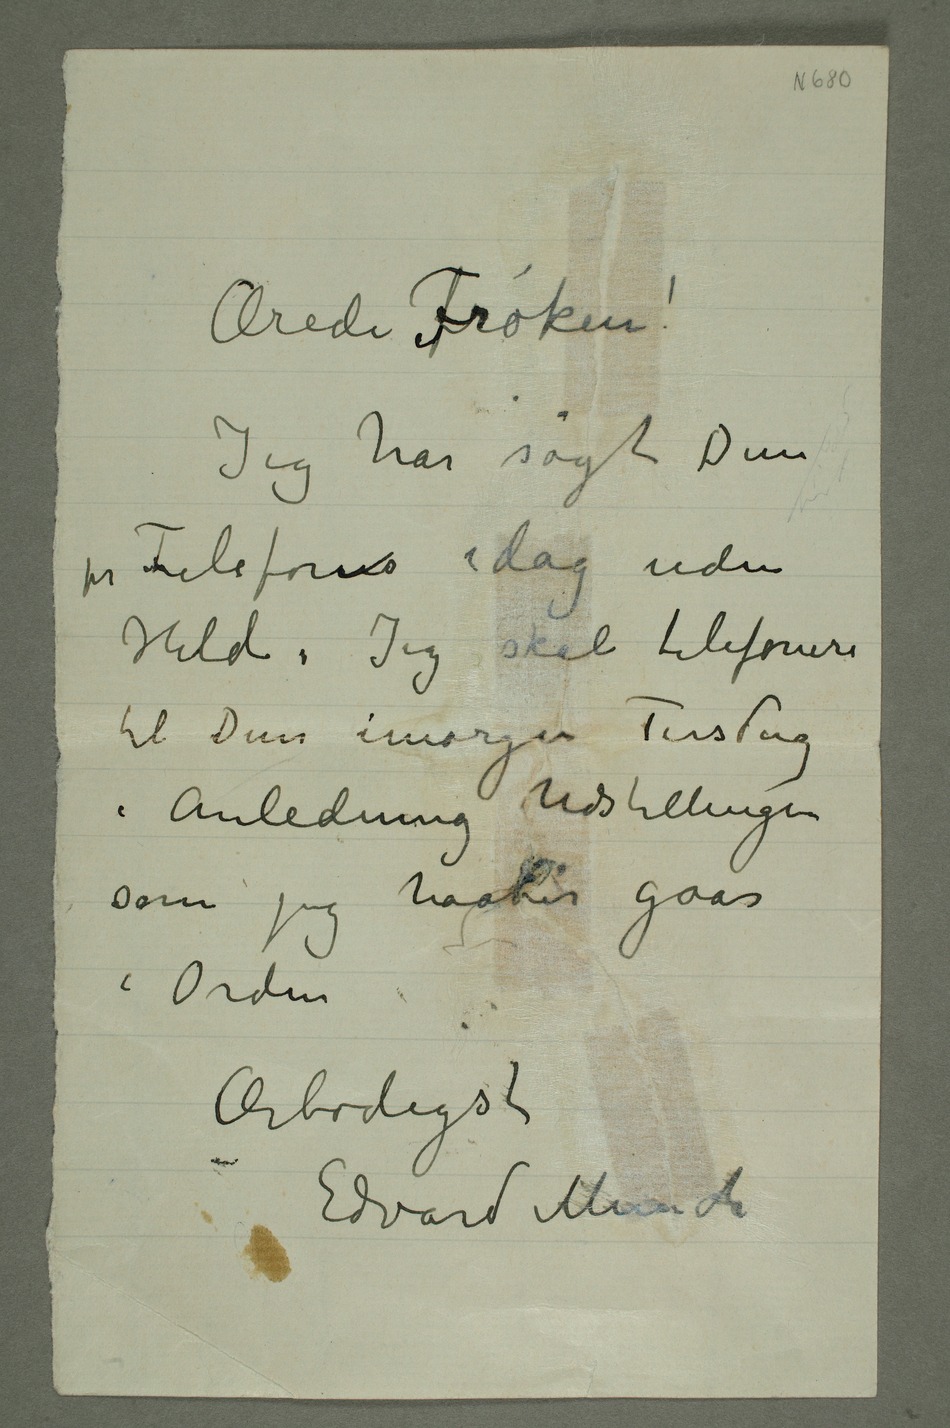 N 680
Ærede Frøken!
Jeg har søgt Dem
pr Telefon idag uden
Held. Jeg skal telefonere
til Dem imorgen Tirsdag
i Anledning Udstillingen
som jeg haaber gaar
i Orden
Ærbødigst
Edvard Munch